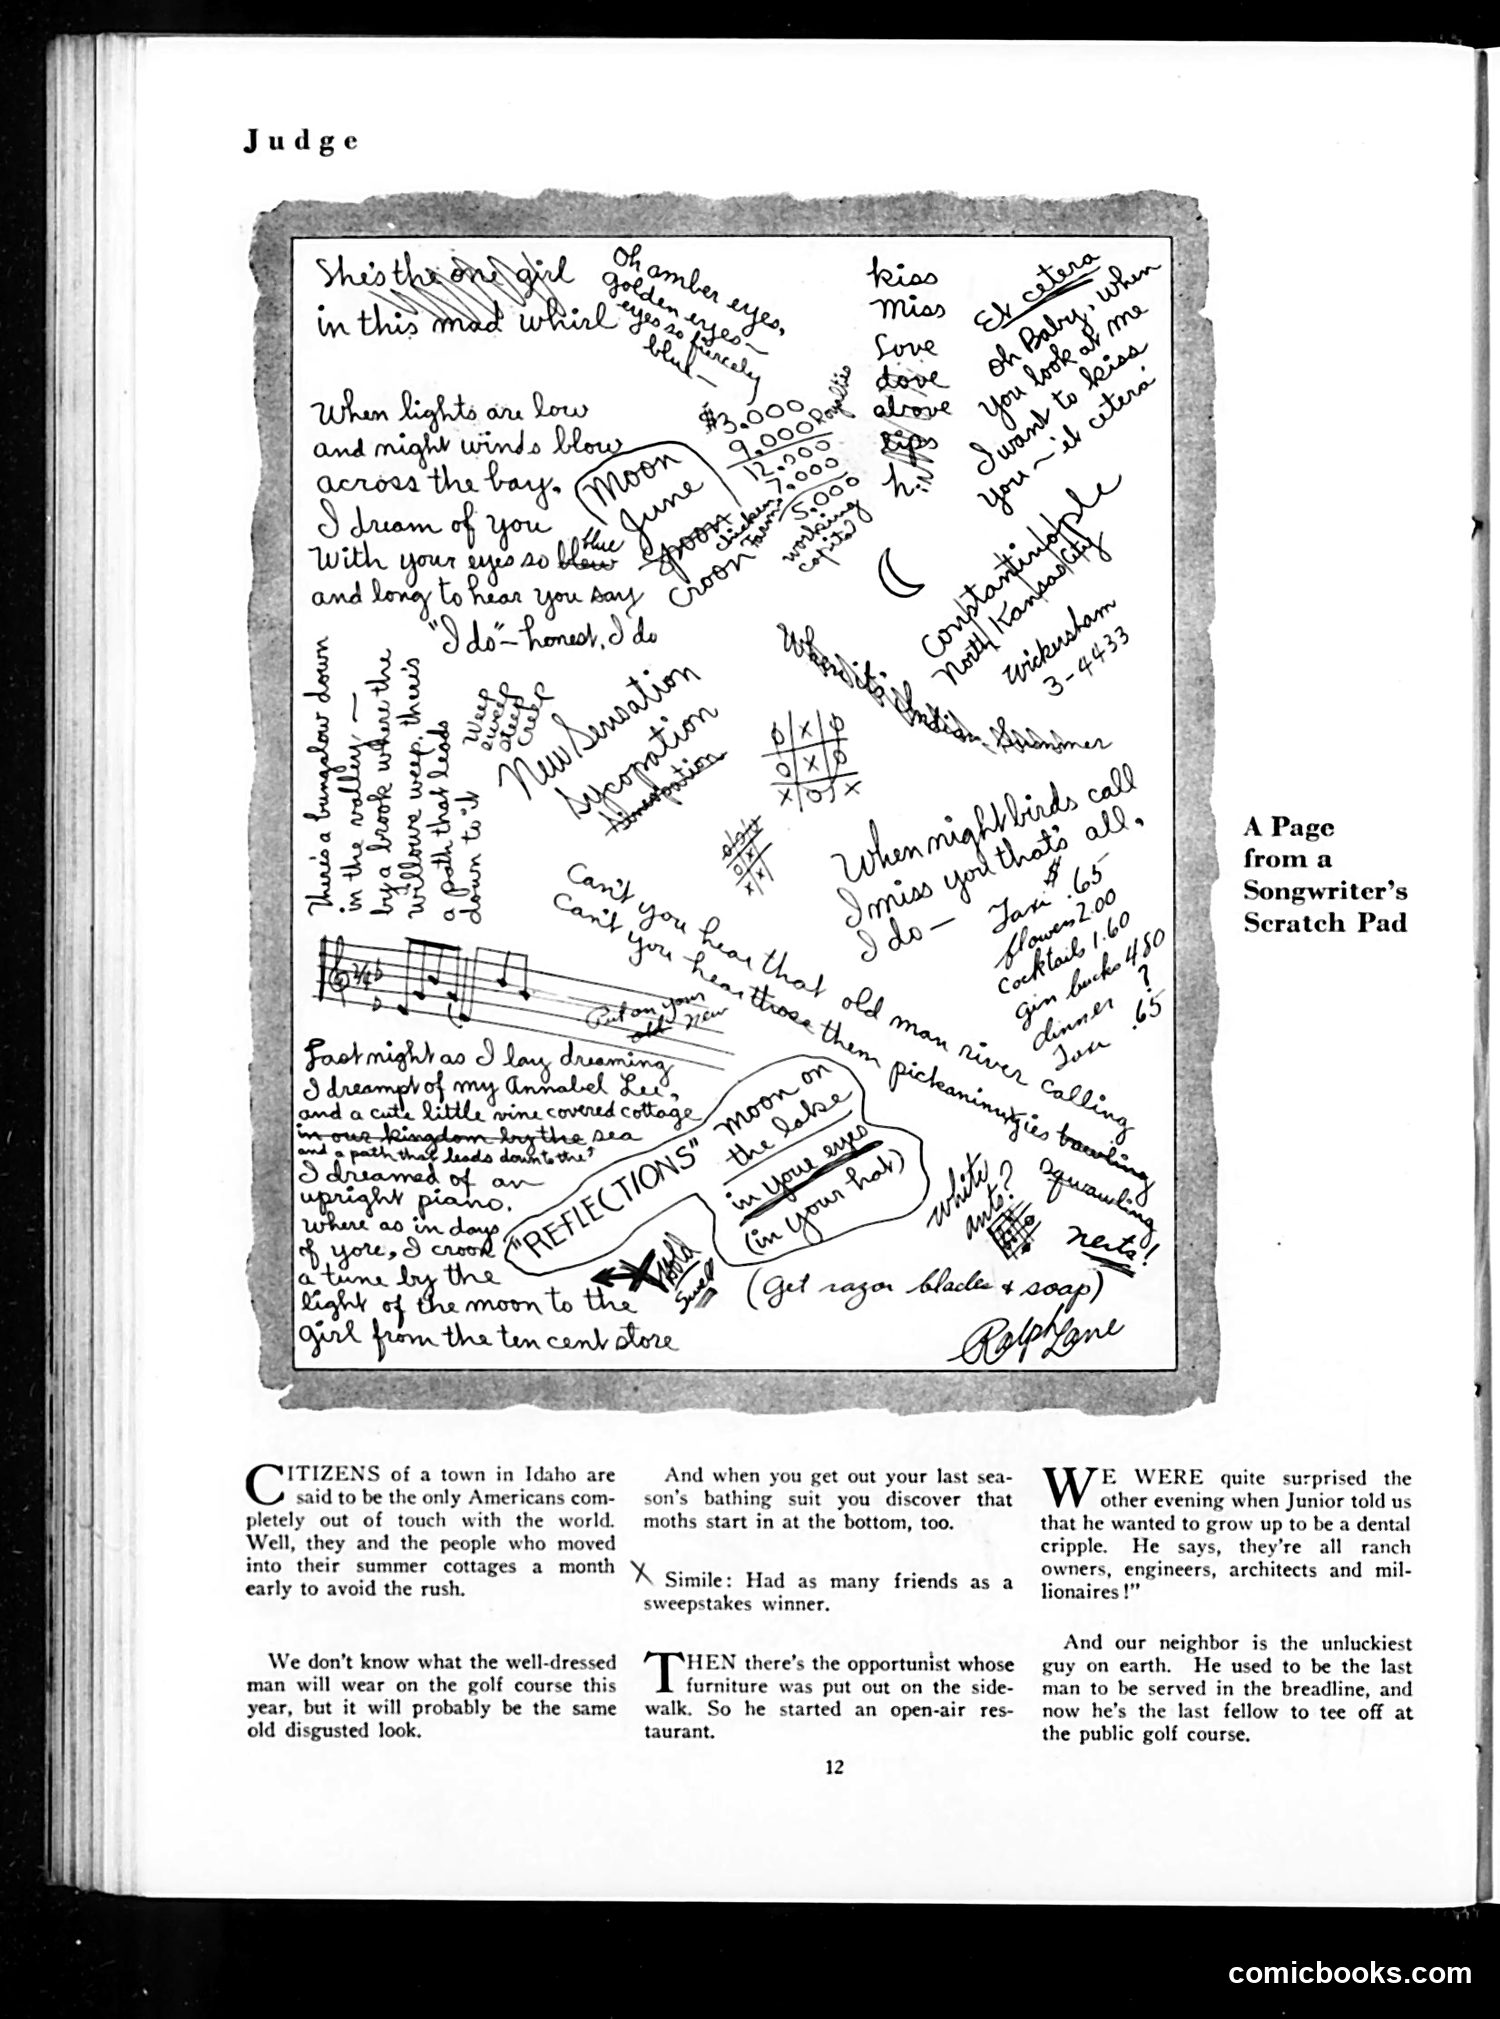 Judge
She's the one girl
in this mad whirl
Oh amber eyes,
golden eyes—
eyes so fiercely
blue—
kiss
miss
love
dove
above
lips
h
Et cetera
Oh Baby, when
you look at me
I want to kiss
you — et cetera
$3,000
9,000 Royalties
12,000
7,000 chicken farm
5,000
working
capital
When lights are low
and night winds blow
across the bay,
I dream of you
With your eyes so blew blue
and long to hear you say
"I do"— honest, I do
Moon
June
spoon
croon
Constantinople
North Kansas City
Wickersham
3-4433
When it's Indian Summer
There's a bungalow down
in the valley,—
by a brook where the
willows weep, there's
a path that leads
down to it
Weep
sweep
steep
creep
New Sensation
sycopation
O X O
O X O
X O X
When nightbirds call
I miss you that's all,
I do —
$
Taxi .65
flowers 2.00
cocktails 1.60
gin bucks 4.80
dinner ?
Taxi .65
Can't you hear that old man river calling
Can't you hear those them pickaninnies bawling
squawling
nerts!
2/4
Put on your
old new
Last night as I lay dreaming
I dreampt of my Annabel Lee,
and a cute little vine covered cottage
in our kingdom by the sea
and a path that leads down to the
I dreamed of an
upright piano,
where as in days
of yore, I croon
a tune by the
light of the moon to the
girl from the ten cent store
"REFLECTIONS" moon on
the lake
in your eyes
(in your hat)
Hold
Swell
white
ants?
(Get razor blades & soap)
Ralph Lane
A Page
from a
Songwriter's
Scratch Pad
CITIZENS of a town in Idaho are
said to be the only Americans com-
pletely out of touch with the world.
Well, they and the people who moved
into their summer cottages a month
early to avoid the rush.
We don't know what the well-dressed
man will wear on the golf course this
year, but it will probably be the same
old disgusted look.
And when you get out your last sea-
son's bathing suit you discover that
moths start in at the bottom, too.
X Simile: Had as many friends as a
sweepstakes winner.
THEN there's the opportunist whose
furniture was put out on the side-
walk. So he started an open-air res-
taurant.
WE WERE quite surprised the
other evening when Junior told us
that he wanted to grow up to be a dental
cripple. He says, they're all ranch
owners, engineers, architects and mil-
lionaires!"
And our neighbor is the unluckiest
guy on earth. He used to be the last
man to be served in the breadline, and
now he's the last fellow to tee off at
the public golf course.
12
comicbooks.com